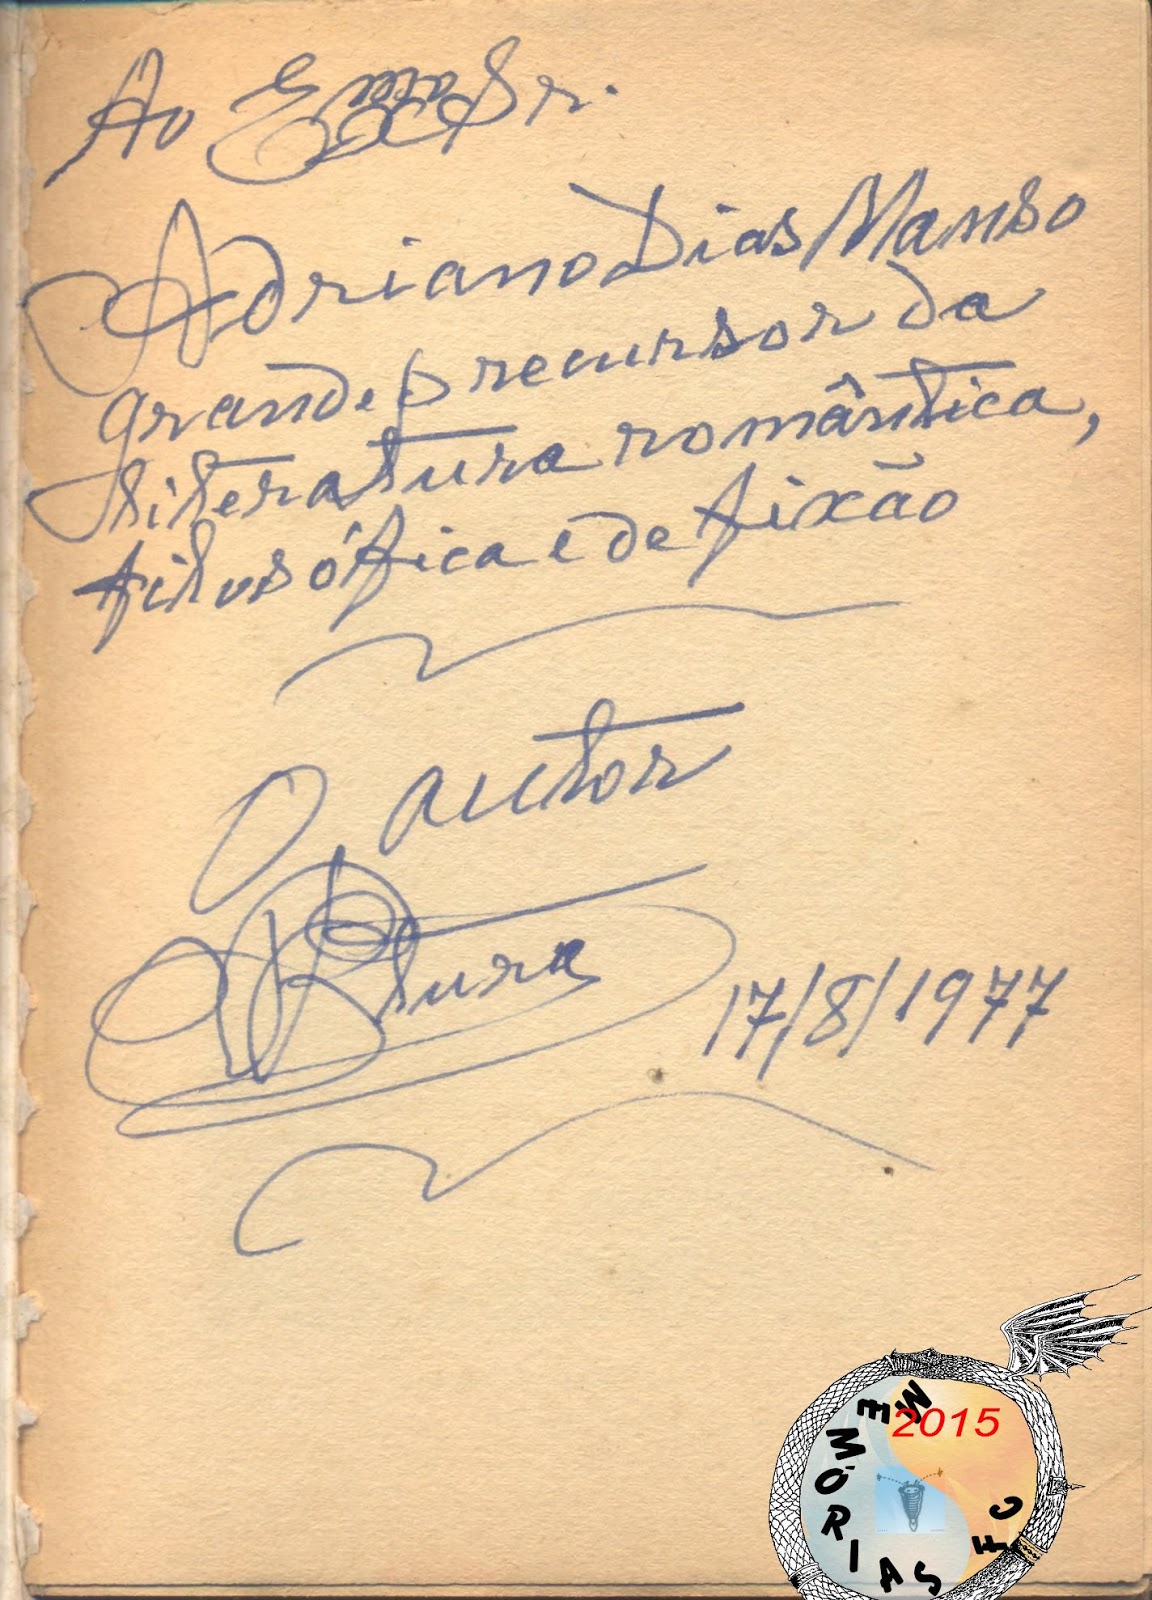 Ao Sr.
Adriano Dias Manso
grande precursor da
literatura romântica,
filosófica e de fixão
O autor
17/8/1977
2015
MEMÓRIAS
FC